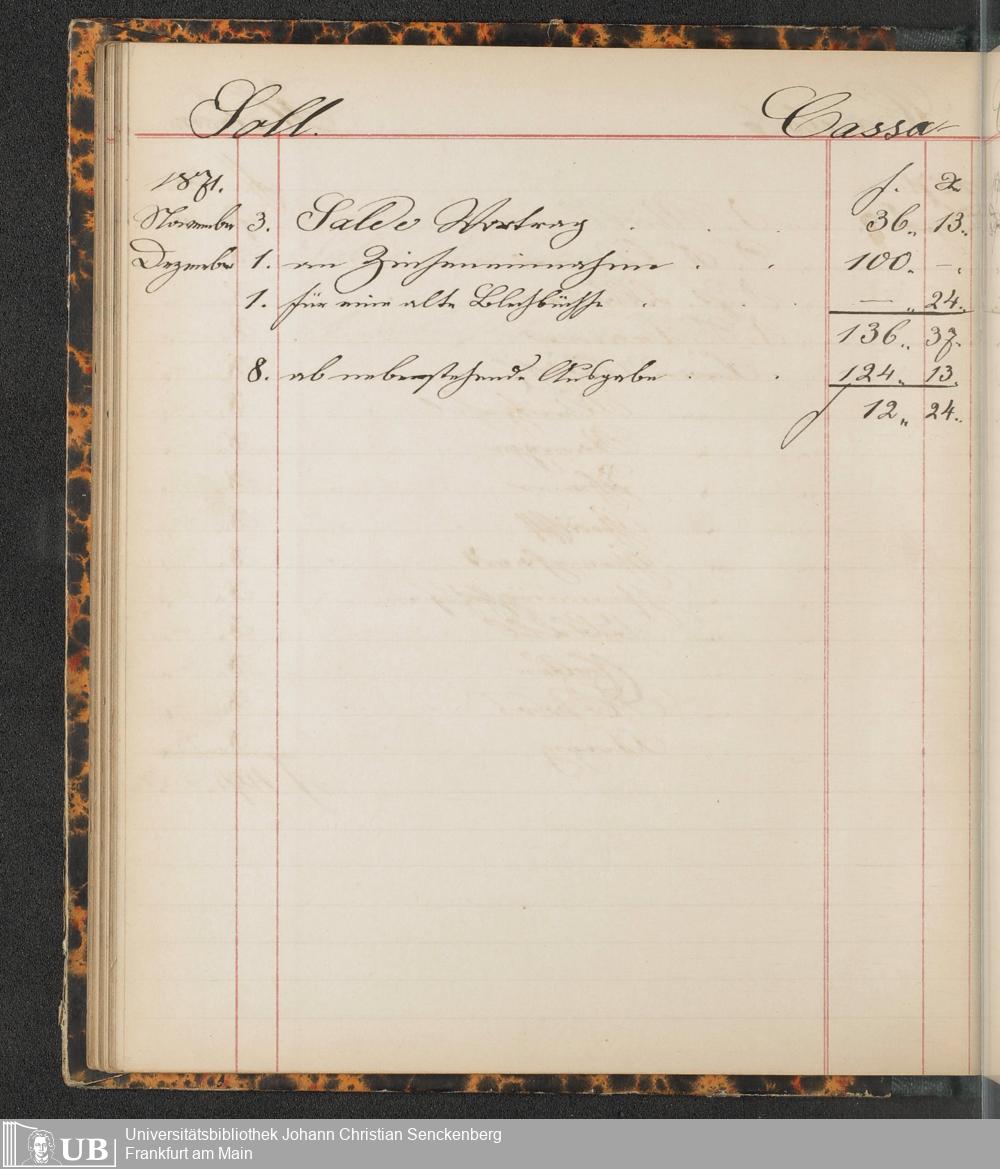 Soll. Cassa
1871. f. x
November 3. Saldo Vortrag . . . 36.. 13..
Dezember 1. an Zinseneinnahme . . 100. – .
1. für eine alte Blechbüchse . . . — .. 24.
136.. 37.
8. ab nebenstehende Ausgabe . . 124.. 13.
f 12.. 24..
UB Universitätsbibliothek Johann Christian Senckenberg
Frankfurt am Main